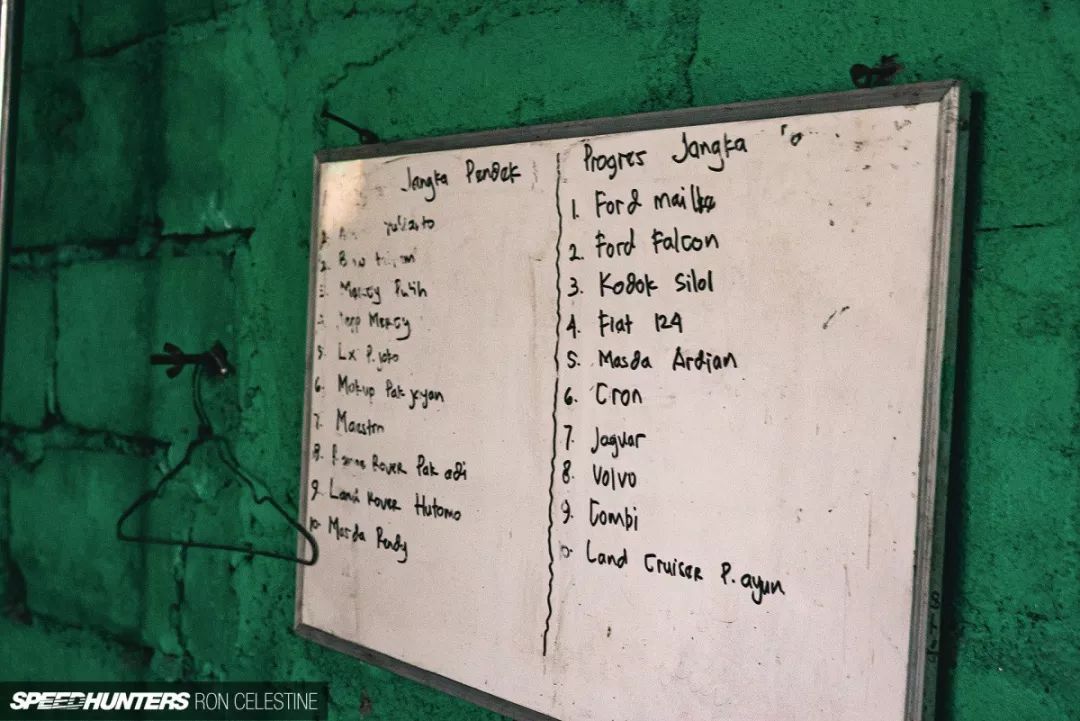 Jangka Pendek
yulianto
3. Mercy Putih
Mercy
5. Lx P. joko
6. Mokup Pak yayan
7. Maestro
8. Range Rover Pak adi
9. Land Rover Hutomo
10. Masda Rendy
Progres Jangka
1. Ford mail
2. Ford Falcon
3. Kodok Silol
4. Fiat 124
5. Masda Ardian
6. Cron
7. Jaguar
8. Volvo
9. Combi
Land Cruiser P. ayun
SPEEDHUNTERS RON CELESTINE